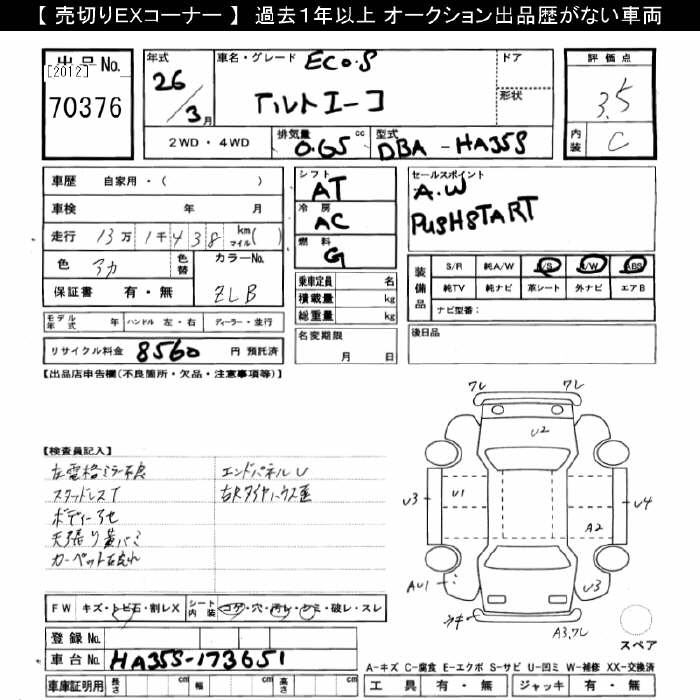 【 売切りEXコーナー 】 過去1年以上 オークション出品歴がない車両
出品 No.
[2012]
70376
年式
26/3月
車名・グレード
ECO・S
アルトエコ
ドア
形状
評価点
3.5
内装
C
2WD・4WD
排気量
0.65 cc
型式
DBA-HA35S
車歴 自家用・( )
車検 年 月
走行 13万1千438 km マイル( )
色 アカ
色替
カラーNo.
ZLB
保証書 有・無
モデル年式 年 ハンドル 左・右 ディーラー・並行
リサイクル料金 8560 円 預託済
シフト
AT
冷房
AC
燃料
G
乗車定員 名
積載量 kg
総重量 kg
名変期限
月 日
セールスポイント
A.W
PUSHSTART
装備品
S/R 純A/W P/S P/W ABS
純TV 純ナビ 革シート 外ナビ エアB
ナビ型番:
後日品
【出品店申告欄(不良箇所・欠品・注意事項等)】
【検査員記入】
左電格ミラー不良
スタッドレスT
ボディー
天張り
カーペット
エンドパネルU
右Rタイヤハウス
FW キズ・トビ石・割レX
シート内装 コゲ・穴・汚レ・シミ・破レ・スレ
登録 No.
車台 No. HA35S-173651
車庫証明用 長さ cm 幅 cm 高さ cm
ワレ
ワレ
U2
U3
U1
U4
A2
AU1
U3
ウキ
A3,ワレ
スペア
A-キズ C-腐食 E-エクボ S-サビ U-凹ミ W-補修 XX-交換済
工具 有・無 ジャッキ 有・無